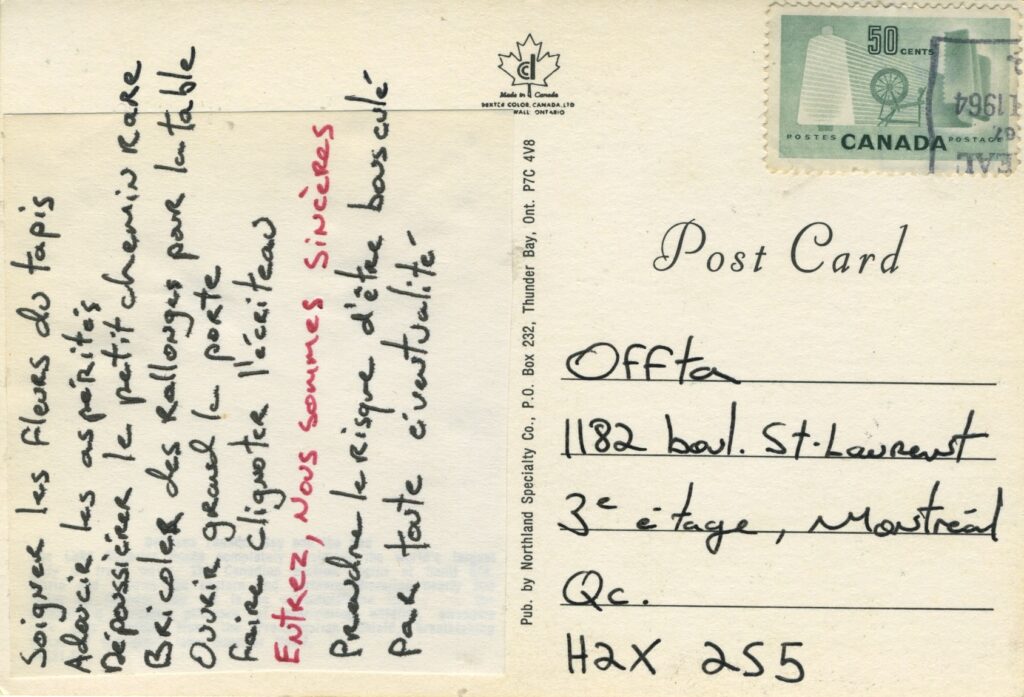 Soigner les fleurs du tapis
Adoucir les aspérités
Dépoussiérer le petit chemin rare
Bricoler des rallonges pour la table
Ouvrir grand la porte
Faire clignoter l'écriteau
Entrez, nous sommes sincères
Prendre le risque d'être bousculé
par toute éventualité
Made in Canada
DEXTER COLOR CANADA, LTD
WALL ONTARIO
Pub. by Northland Specialty Co., P.O. Box 232, Thunder Bay, Ont. P7C 4V8
50 CENTS
POSTES CANADA POSTAGE
1964
Post Card
OFFTA
1182 boul. St-Laurent
3e étage, Montréal
Qc.
H2X 2S5